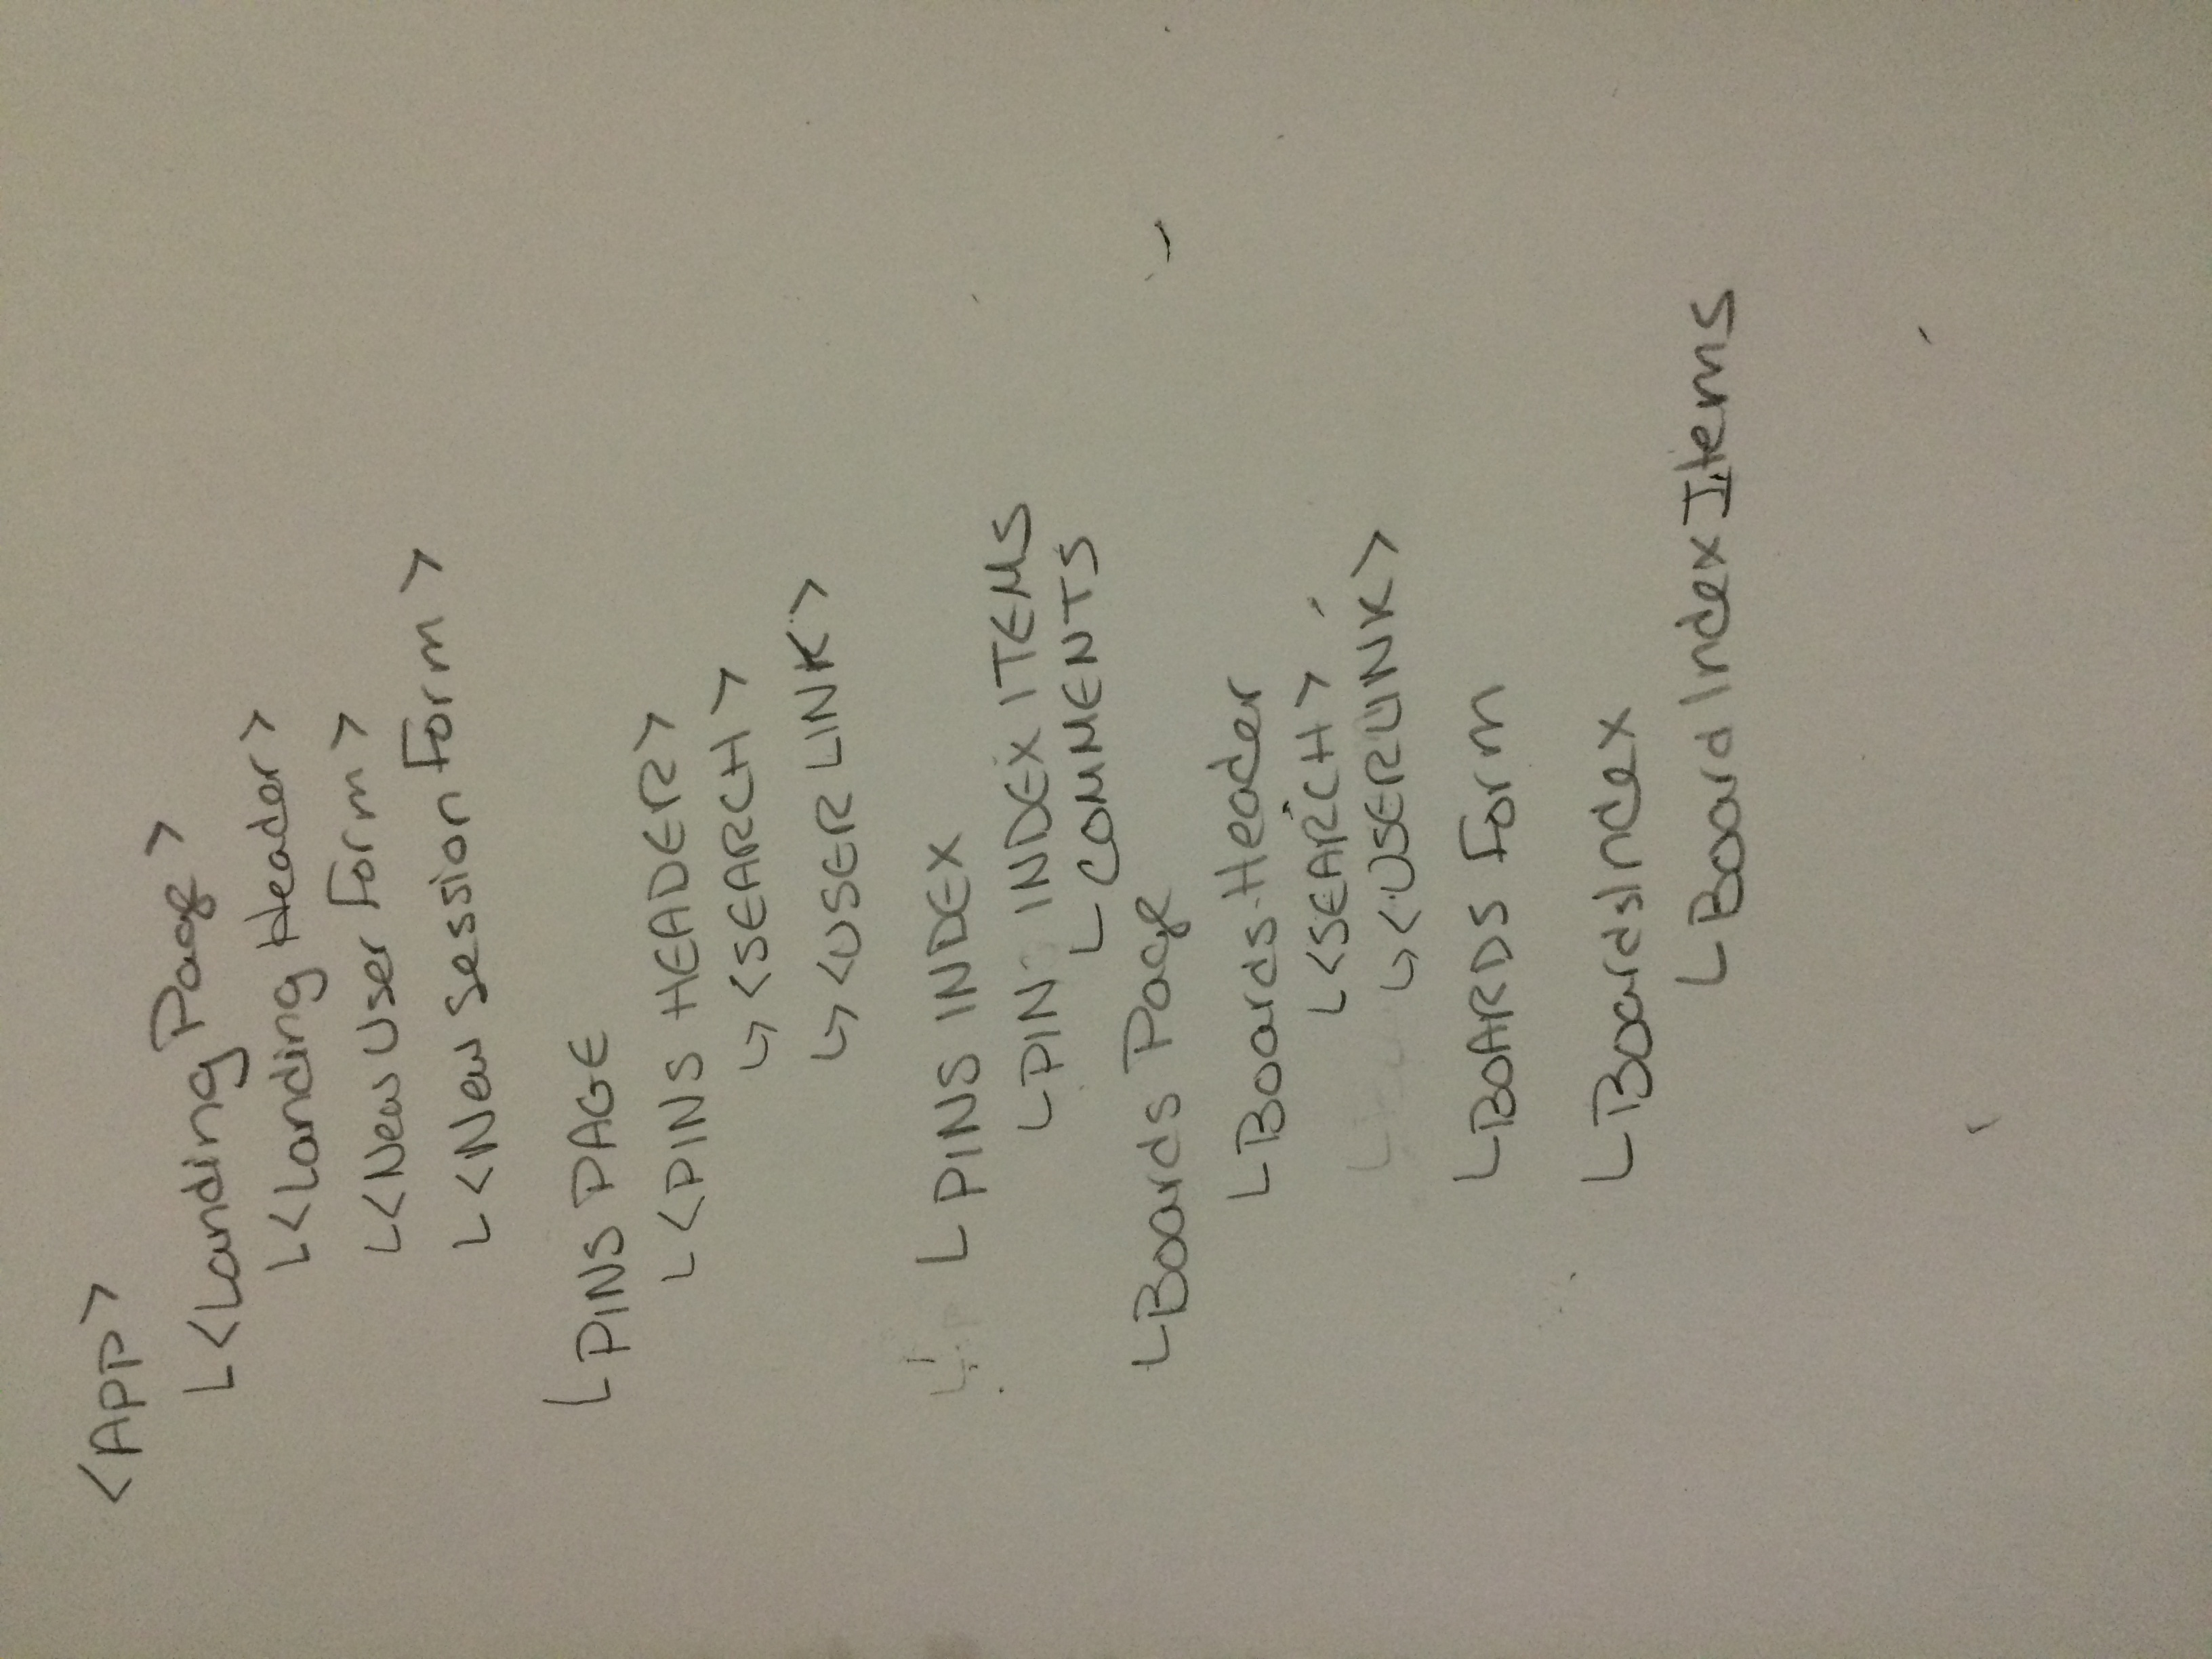 <App>
└<Landing Page>
└<Landing Header>
└<New User Form>
└<New Session Form>
└PINS PAGE
└<PINS HEADER>
↳<SEARCH>
↳<USER LINK>
└PINS INDEX
└PIN INDEX ITEMS
└COMMENTS
└Boards Page
└Boards Header
└<SEARCH>
↳<USERLINK>
└BOARDS Form
└BoardsIndex
└Board Index Items